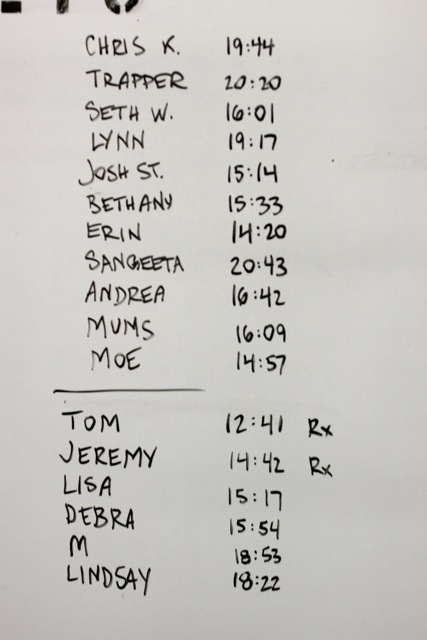 CHRIS K. 19:44
TRAPPER 20:20
SETH W. 16:01
LYNN 19:17
JOSH ST. 15:14
BETHANY 15:33
ERIN 14:20
SANGEETA 20:43
ANDREA 16:42
MUMS 16:09
MOE 14:57
TOM 12:41 Rx
JEREMY 14:42 Rx
LISA 15:17
DEBRA 15:54
M 18:53
LINDSAY 18:22